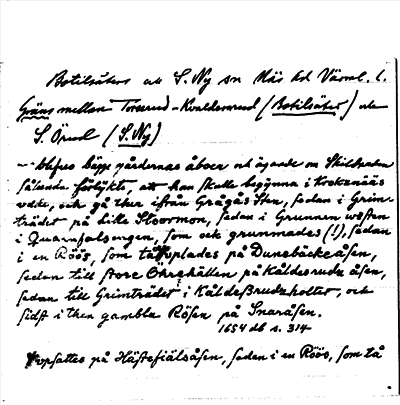 Botilsäters och S. Ny sn När hd Värml. l.
Gräns mellan Torsrud - Kvaldersrud (Botilsäter) och
S. Örud (S. Ny)
— blefwo bägge gårdernas åboer och ägande om Skildnaden
således förlikte, att han skulle begynna i Krokenääs
wike, och gå ther ifrån Grågås Sten, sedan i Grim-
trädet på Lille Stoormon, sedan i Grunnen wästen
i Quarnfalsängen, som ock grunmades (!), sedan
i en Röös, som tå uplades på Dunebäckeåsen,
sedan till store Ohrehällen på Kåldesrudz åsen,
sedan till Grimträdet i Kåldeßrudzholtet, och
sidst i then gambla Rösen på Snaråsen.
1654 db s. 314
upsattes på Hästefiälsåsen, sedan i en Röös, som tå